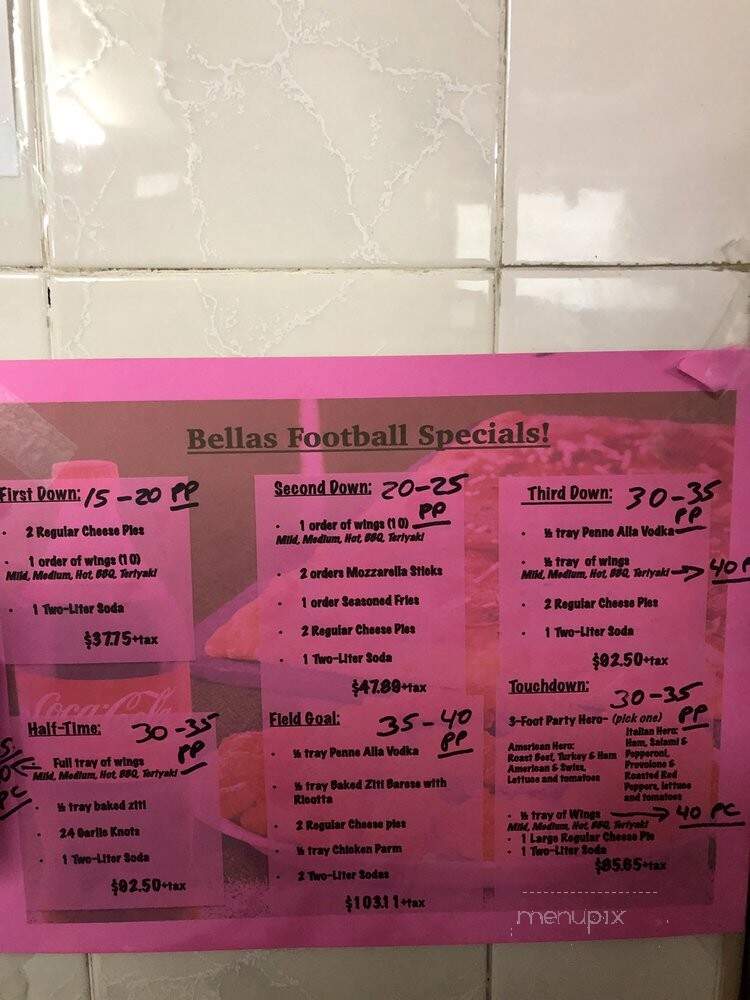 Bellas Football Specials!
First Down: 15-20 PP
2 Regular Cheese Pies
1 order of wings (10)
Mild, Medium, Hot, BBQ, Teriyaki
1 Two-Liter Soda
$37.75+tax
Second Down: 20-25
PP
1 order of wings (10)
Mild, Medium, Hot, BBQ, Teriyaki
2 orders Mozzarella Sticks
1 order Seasoned Fries
2 Regular Cheese Pies
1 Two-Liter Soda
$47.89+tax
Third Down: 30-35
PP
½ tray Penne Alla Vodka
½ tray of wings
Mild, Medium, Hot, BBQ, Teriyaki → 40 P
2 Regular Cheese Pies
1 Two-Liter Soda
$92.50+tax
Coca-Cola
Half-Time: 30-35
PP
Full tray of wings
Mild, Medium, Hot, BBQ, Teriyaki
½ tray baked ziti
24 Garlic Knots
1 Two-Liter Soda
$92.50+tax
Field Goal: 35-40
PP
½ tray Penne Alla Vodka
½ tray Baked Ziti Barese with
Ricotta
2 Regular Cheese pies
½ tray Chicken Parm
2 Two-Liter Sodas
$103.11+tax
Touchdown: 30-35
PP
3-Foot Party Hero- (pick one)
American Hero:
Roast Beef, Turkey & Ham
American & Swiss,
Lettuce and tomatoes
Italian Hero:
Ham, Salami &
Pepperoni,
Provolone &
Roasted Red
Peppers, lettuce
and tomatoes
½ tray of Wings → 40 PC
Mild, Medium, Hot, BBQ, Teriyaki
1 Large Regular Cheese Pie
1 Two-Liter Soda
$85.65+tax
menupix